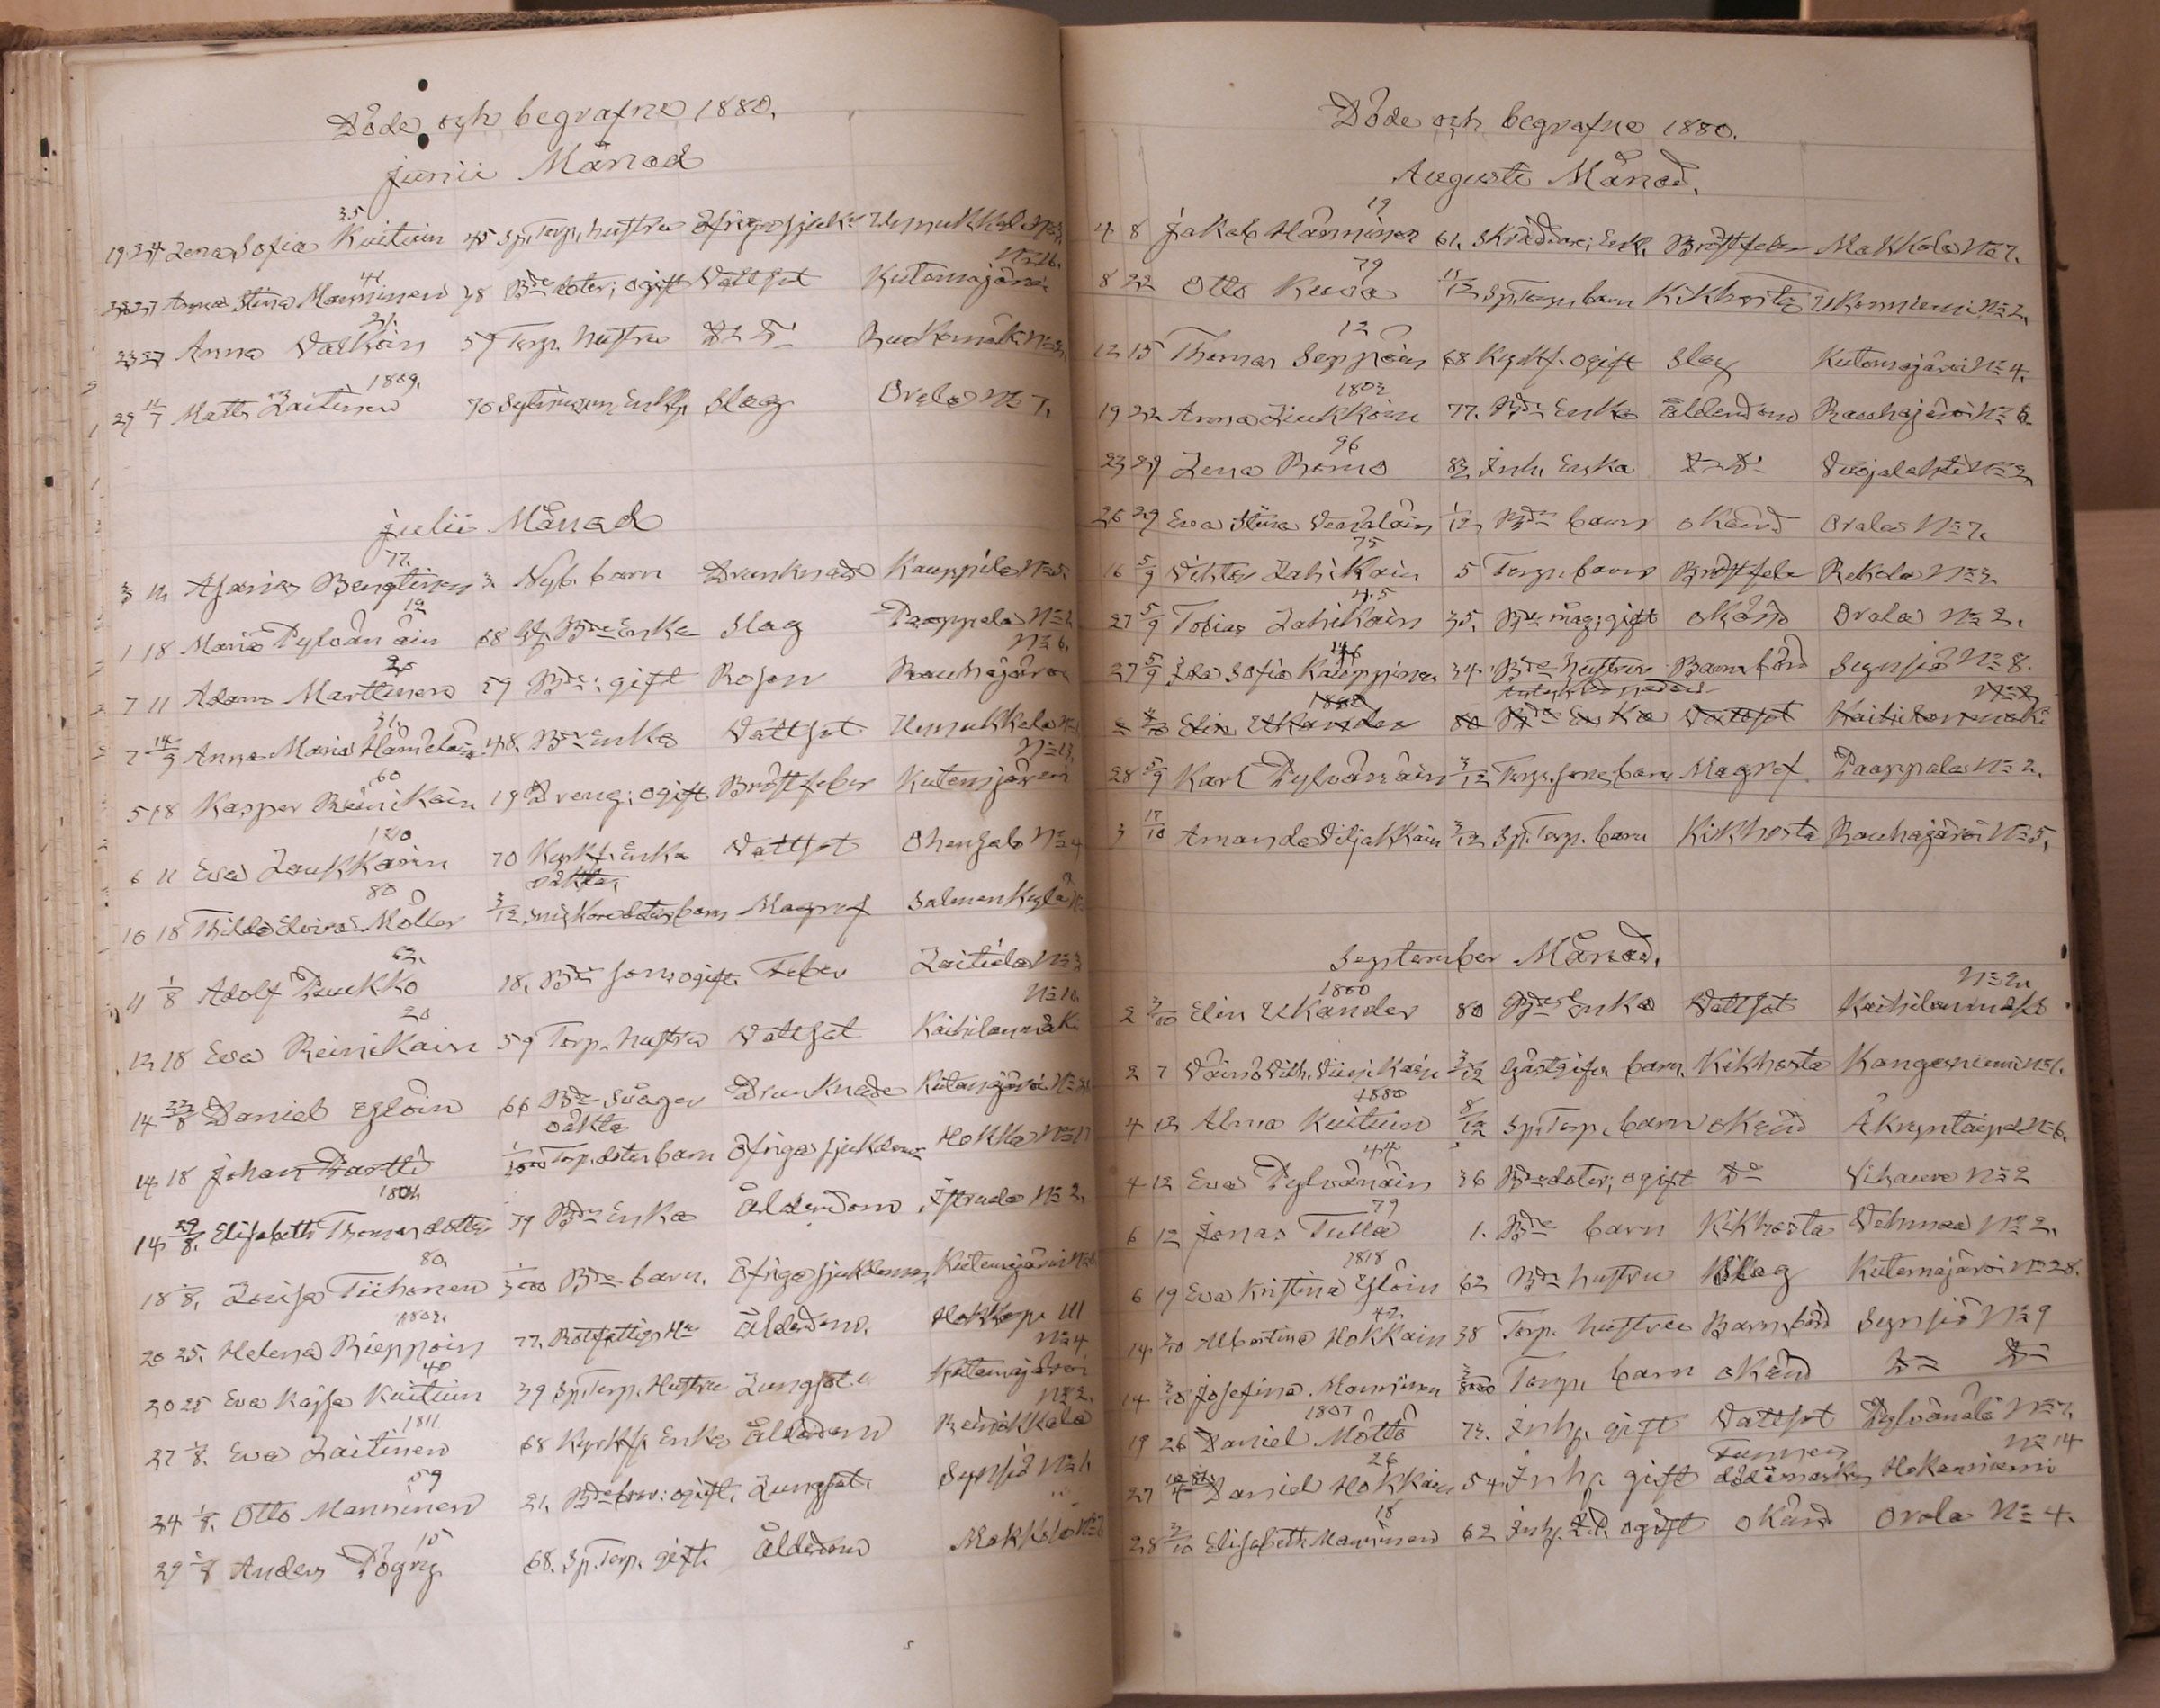 Döde och begrafne 1880.
Junii Månad
35
19 24 Lena Sofia Kuituin 45 Sp. Torp. hustru Öfriga sjukd.
41
Anna Stina Manninen 38 Bde dotter; ogift Vattsot Kutemajärvi
21.
23 27 Anna 59 Torp. hustru Do Do
1809.
29 11/7 Matts Laitinen 70 Enkl. Slag Orala No 7.
Julii Månad
77.
Asarias Bengtinen 3 Nyb. barn Drunknade Kauppila No 5.
12
1 18 Maria Pylvänäin 68 Bde Enka Slag Paappala No 2
No 6.
20
7 11 Adam Marttinen 59 Bde; gift Rosen Rauhajärvi
31.
7 14/9 Anna Maria 48. Bde Enka Vattsot
No 13.
60
5 18 Kasper Reinikain 19 Dreng; ogift Bröstfeber Kutemajärvi
1810
6 11 Eva Laukkarin 70 Kyrkf. Enka Vattsot Ohensalo No 4
80 oäkta
10 18 Thilda Elvira Möller 3/12 barn Magref Salmenkylä
62.
11 1/8 Adolf Puukko 18. Bde son; ogift. Feber Laitiala No 3
20 No 10.
12 18 Eva Reinikain 59 Torp. hustru Vattsot Kaihilanmäki
14 22/8 Daniel Eglöin 66 Bde Svåger Drunknade Kutemajärvi
oäkta
14 18 Johan Partti Torp. doter barn Öfriga sjukdomar Hokka No 17
1801.
14 29/8. Elisabeth Thomasdotter 79 Bde Enka Ålderdom Istruala No 2.
80.
18 1/8. Lovisa Tiihonen Bde barn. Öfriga sjukdomar Kutemajärvi
1803.
20 25. Helena Rieppoin 77. Rotefattig Ålderdom. III
40 No 4
20 25 Eva Kajsa Kuituin 39 Sp. Torp. Hustru Lungsot Kutemajärvi
1811 No 2.
27 1/8. Eva Laitinen 68 Kyrkf. Enka Ålderdom Reinikkala
59
24 1/8. Otto Manninen 21. Bde ogift. Lungsot. Synsiö No 1.
15
29 1/8 Anders Pögry 68. Sp. Torp. gift. Ålderdom Makkola
Döde och begrafne 1880.
Augusti Månad.
19
4 8 Jakob Hänninen 61. Skräddare; Enkl. Bröstfeber Makkola No 7.
79
8 22 Otto Kuva 15/12 Sp. Torp. barn Kikhosta Ukonniemi No 2.
12
12 15 Thomas Seppäin 68 Kyrkf. ogift Slag Kutemajärvi No 4.
1803
19 22 Anna Liukkoin 77. Bde Enka Ålderdom Rauhajärvi No 6.
96
23 29 Lena Romo 83 Inh. Enka Do Vuojalahti No 2
26 29 Eva Stina 1/12 Bde barn okänd Orala No 7.
75
16 5/9 Viktor Lahikain 5 Torp. barn Bröstfeber Rekola No 3.
45
27 5/9 Tobias Lahikain 35. Bde måg; gift okänd Orala No 2.
46
27 5/9 Ida Sofia Kauppinen 34 Bde hustru Barnsbörd Synsiö No 8.
1800 No 2
Elin Ukander 80 Bde Enka Vattsot Kaihilanmäki
28 5/9 Karl Pylvänäin 3/12 Torp. sone barn Magref. Paappala No 2.
3 17/10 Amanda Viljakkain 3/12 Sp. Torp. barn Kikhosta Rauhajärvi No 5.
September Månad.
1800 No 2.
2 3/10 Elin Ukander 80 Bde Enka Vattsot Kaihilanmäki
2 7 Väinö Vilh. Viinikain 3/12 Gästgifv. barn. Kikhosta Kangasniemi No 1.
1880
4 12 Alma Kuituin 8/12 Sp. Torp. barn okänd Äkryntaipal No 6.
44
4 12 Eva Pylvänäin 36 Bde doter; ogift Do Vihavu No 2
79
6 12 Jonas Tulla 1. Bde barn Kikhosta Vehmaa No 2.
1818
6 19 Eva Kristina Eglöin 62 Bde hustru Slag Kutemajärvi No 28.
42
14 3/10 Albertina Hokkain 38 Torp. hustru Barnsbörd Synsiö No 9
14 3/10 Josefina Manninen Torp. barn okänd Do Do
1807
19 26 Daniel Möttö 73. Inh. gift Vattsot Pylvänälä No 7.
26 Funnen No 14
27 Daniel Hokkain 54 Inh. gift död i marken Hokanniemi
18
28 3/10 Elisabeth Manninen 62 Inh. ogift okänd Orala No 4.